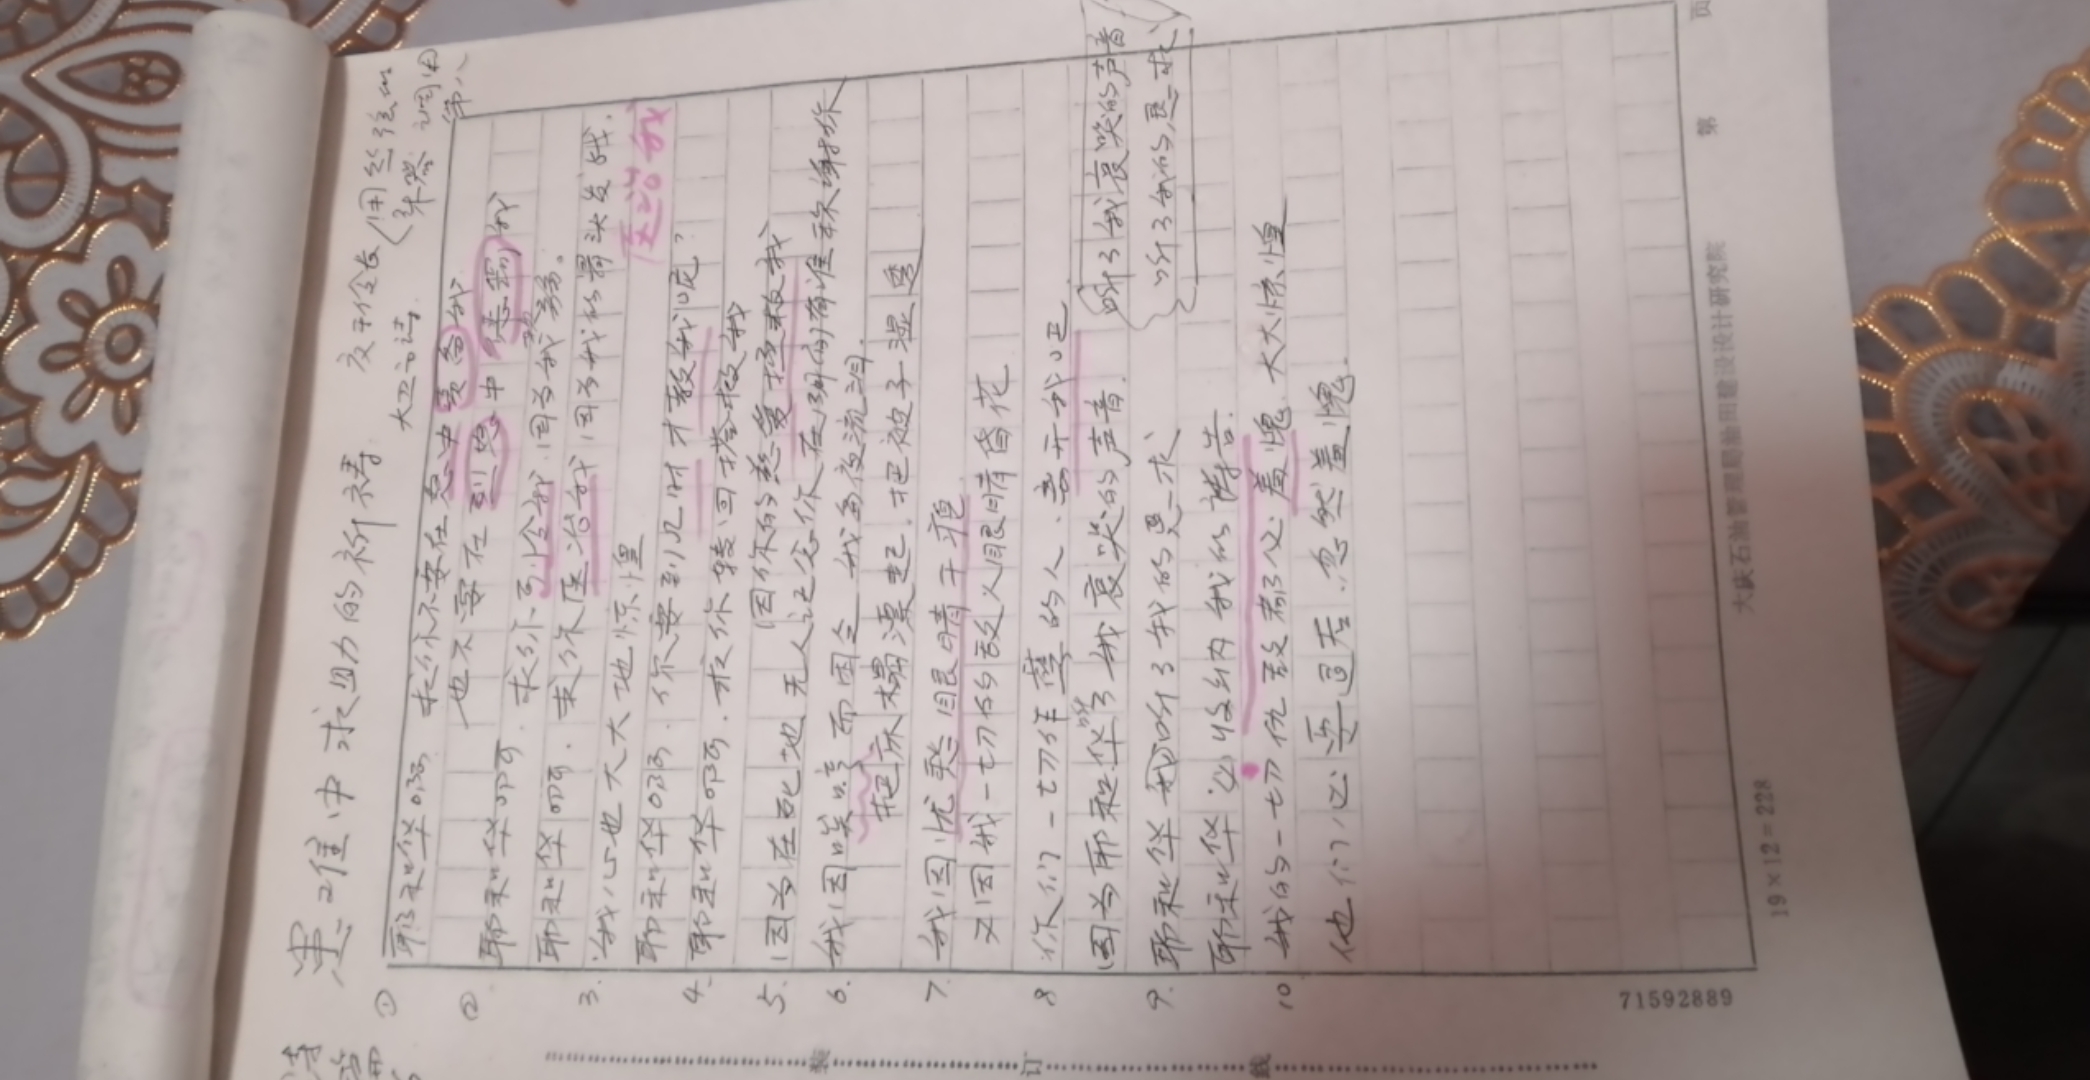 患难中求助的祈祷
交于伶长(用丝弦的
大卫的诗. 乐器.调用
第八
① 耶和华啊. 求你不要在怒中责备我.
也不要在烈怒中惩罚我
② 耶和华啊. 求你可怜我.因为我软弱。
耶和华啊. 求你医治我 因为我的骨头发战.
3. 我心也大大地惊惶
医治我
耶和华啊.你要到几时才救我呢?
4. 耶和华啊.求你转回搭救我
因你的慈爱拯救我
5. 因为在死地无人记念你在阴间有谁称谢你
6. 我因唉哼而困乏 我每夜流泪.
把床榻漂起.把被子湿透
7. 我因忧愁眼睛干瘪
又因我一切的敌人眼睛昏花
8 你们一切作孽的人.离开我吧
因为耶和华听了我哀哭的声音.
听了我哀哭的声音
听了我的恳求
9. 耶和华听了我的恳求
耶和华必收纳我的祷告.
10. 我的一切仇敌都必羞愧.大大惊惶
他们必要退后.忽然羞愧.
装 订 线
71592889
19×12=228
大庆石油管理局油田建设设计研究院
第 页